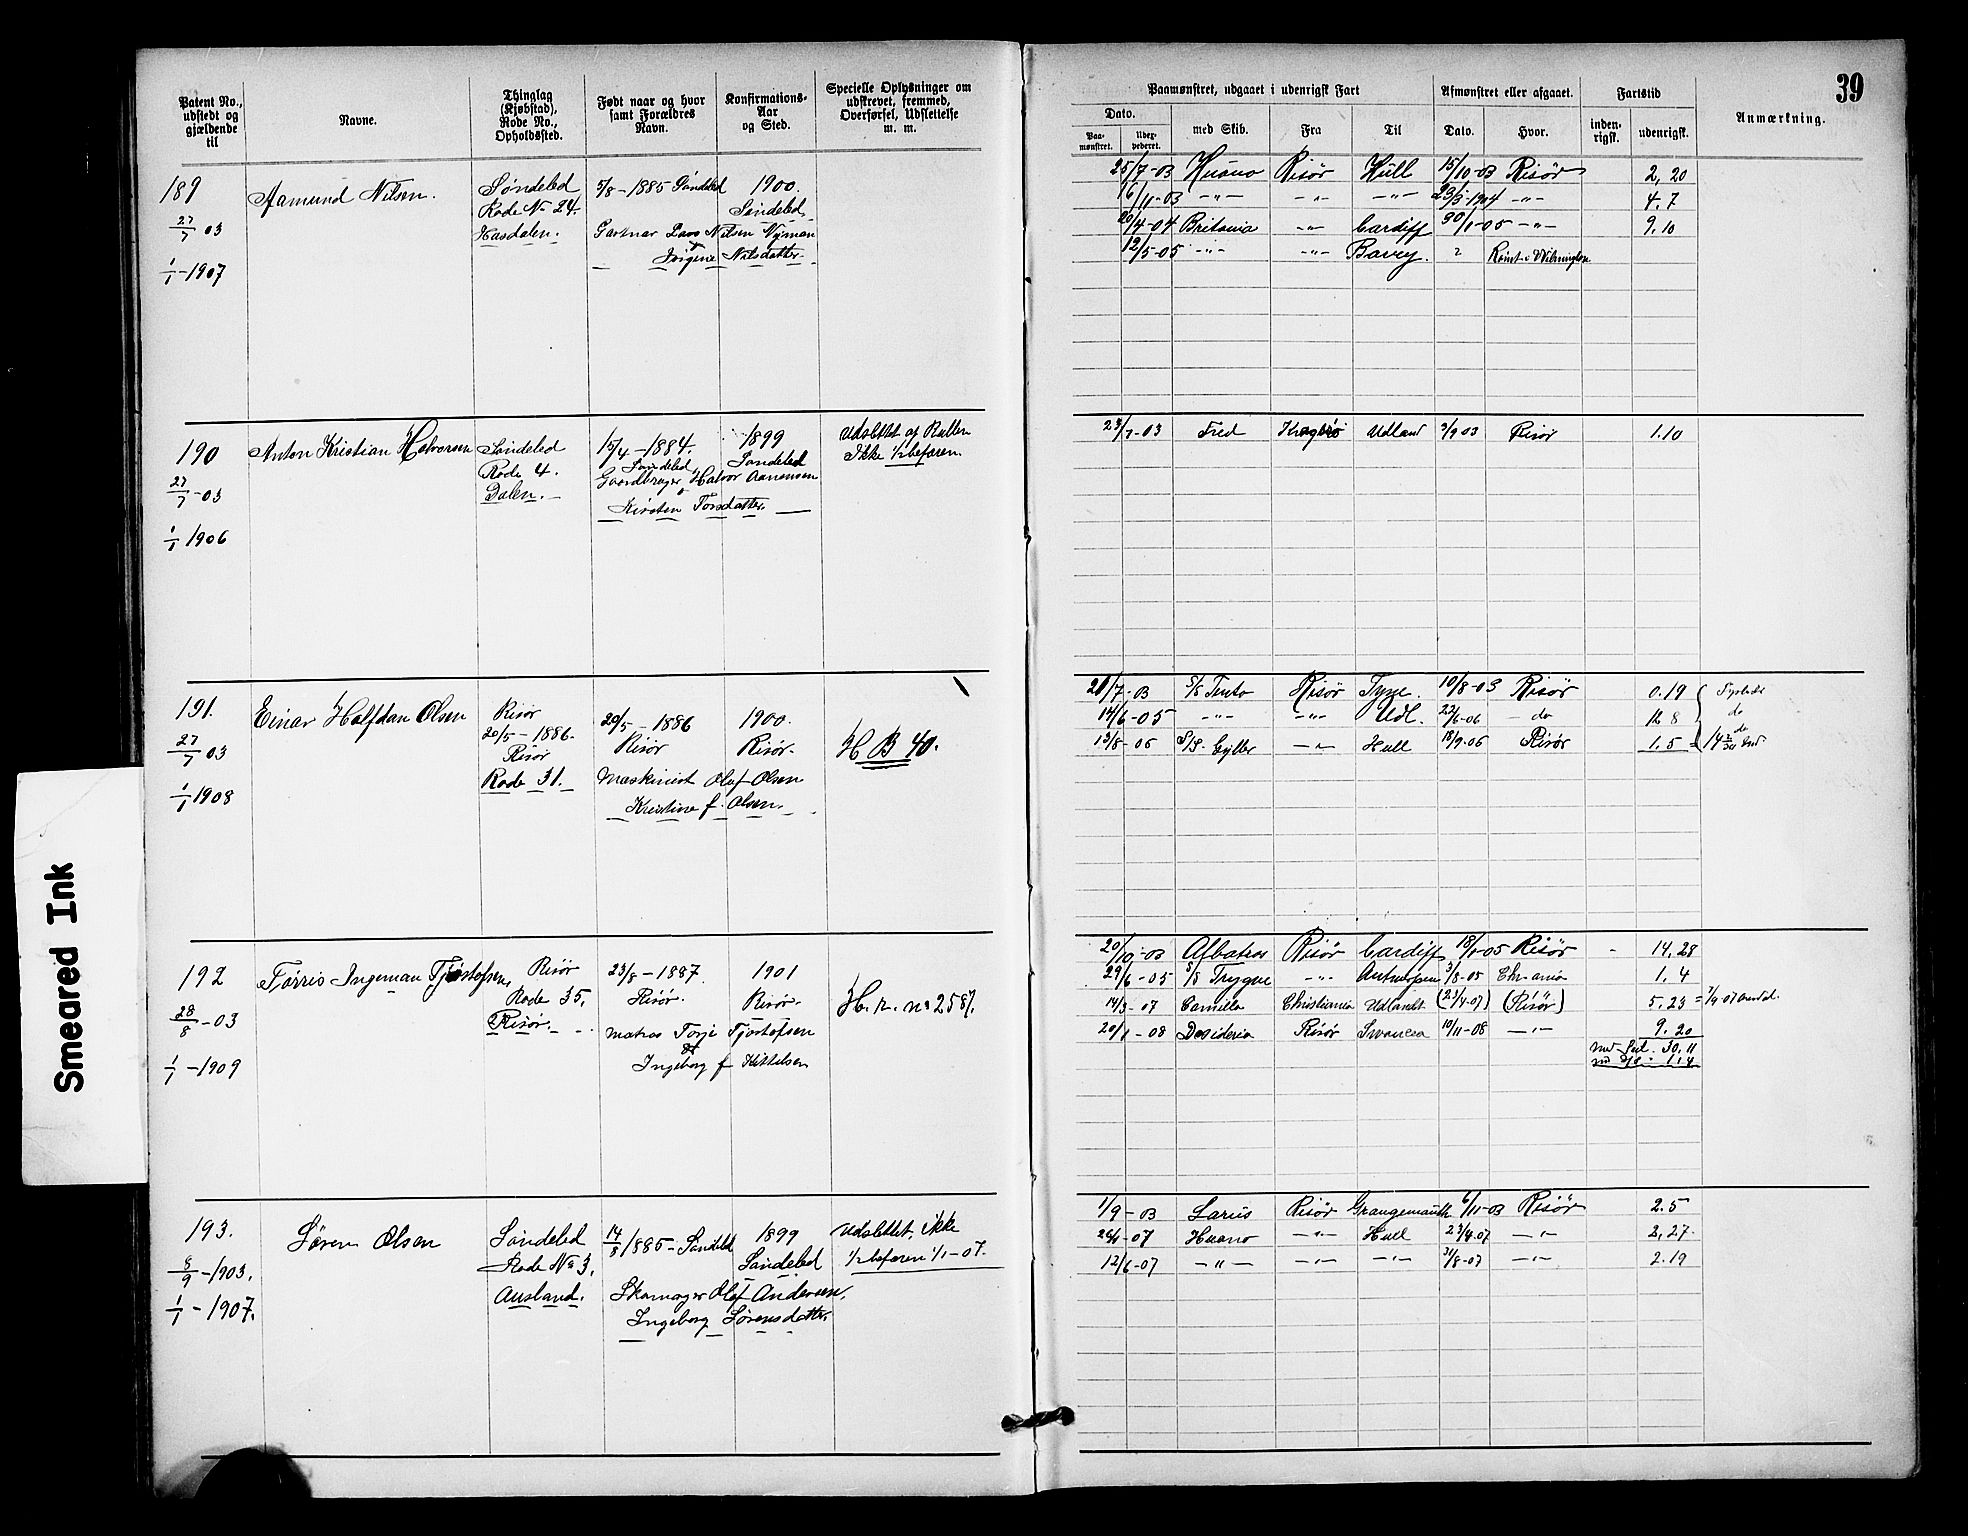 39
Patent No., udstedt og gjældende til
Navne.
Thinglag (Kjøbstad), Rode No., Opholdssted.
Født naar og hvor samt Forældres Navn.
Konfirmations-Aar og Sted.
Specielle Oplysninger om udskrevet, fremmed, Overførsel, Udslettelse m. m.
Paamønstret, udgaaet i udenrigsk Fart
Afmønstret eller afgaaet.
Fartstid
Anmærkning.
Dato.
Paa-mønstret.
med Skib.
Fra
Til
Dato.
Hvor.
inden-rigsk.
udenrigsk.
189
27/7 03
1/1-1907
Aamund Nilsen.
Søndeled
Rode No 24.
Hasdalen.
5/8-1885 Søndeled
1900.
Søndeled.
Nilsen
Nilsdatter
25/7-03 Huano Risör Hull 15/10-03 Risör 2,20
16/11-03 -"- -"- -"- 23/3-1904 -"- 4.7
20/4-04 Britania -"- Cardiff 30/1-05 -"- 9.10
12/5-05 -"- -"- Rømt i Wilmington
190
27/7-03
1/1 1906
Anton Kristian Halvorsen
Søndeled
Rode 4.
Dalen.
15/4-1884.
Søndeled
1899
Søndeled
Gaardbruger Halvor Aanensen
Kirsten Torsdatter.
Udslettet af Rullen
Ikke 1/2 befaren.
23/7-03 Fred Kragerø Udland 3/9 03 Risör 1.10
191.
27/7 03
1/1 1908
Einar Halfdan Olsen
Risör
20/5-1886.
Risör
Rode 31.
20/5-1886
Risör
1900.
Risör.
Maskinist Olaf Olsen
Kristine f. Olsen.
H B 40.
21/7-03 S/S Tento Risör Tyne. 10/8-03 Risör 0.19
14/6-05 -"- -"- Udl. 22/6-06 do 12 8 do
13/8-06 S/S. Gyller -"- Hull 18/9-06 Risör 1.5
192
28/8-03
1/1-1909
Tørris Ingeman Tjøstofsen,
Risör
Rode 35,
Risör.
23/8-1887.
Risör.
1901
Risör.
Matros Torje Tjostofsen
Ingeborg f Kittelsen
H. r. no 258/.
20/10-03 Albatros Risör Cardiff 18/1-05 Risör 14,28
29/6-05 S/S Trygve -"- Antwerpen 3/8-05 Chr-ania 1.4
14/3-07 Camilla Christiania Udlandet (23/4-07) (Risör) 5.23
20/1-08 Desideria Risör Swansea 10/11-08 -"- 9.20
med Seil 30.11
1.4
193.
8/9-1903.
1/1-1907.
Søren Olsen
Søndeled
Rode No 3,
Ausland.
14/8/1885-Søndeled
1899
Søndeled
Skomager Olaf Andersen,
Ingeborg Sørensdatter.
Udslettet, ikke
1/2 befaren 1/1-07.
1/9-03 Larius Risör Grangemouth 6/11-03 Risör 2.5
-07 Huano -"- Hull 23/4-07 -"- 2,27
12/6-07 -"- -"- -"- 31/8-07 -"- 2.19
Smeared Ink